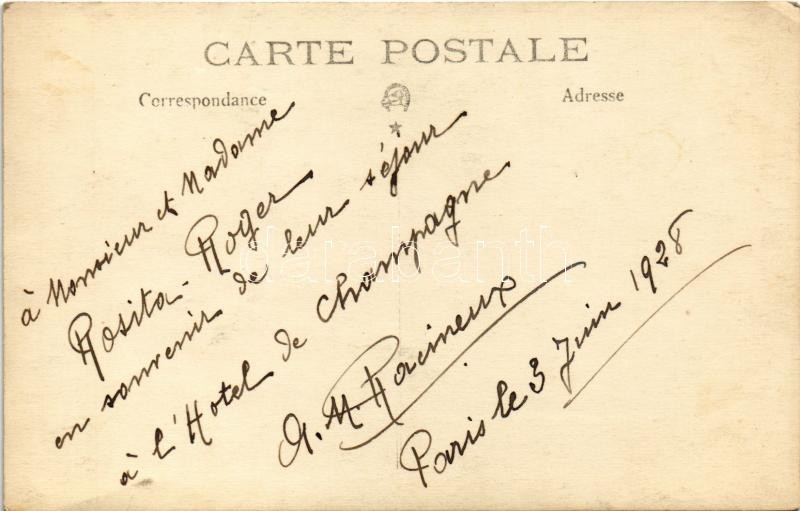 CARTE POSTALE
Correspondance
Adresse
à Monsieur et Madame
Rosita - Roger
en souvenir de leur séjour
à l'Hotel de Champagne
A. M. Racineux
Paris le 3 Juin 1928
darabanth